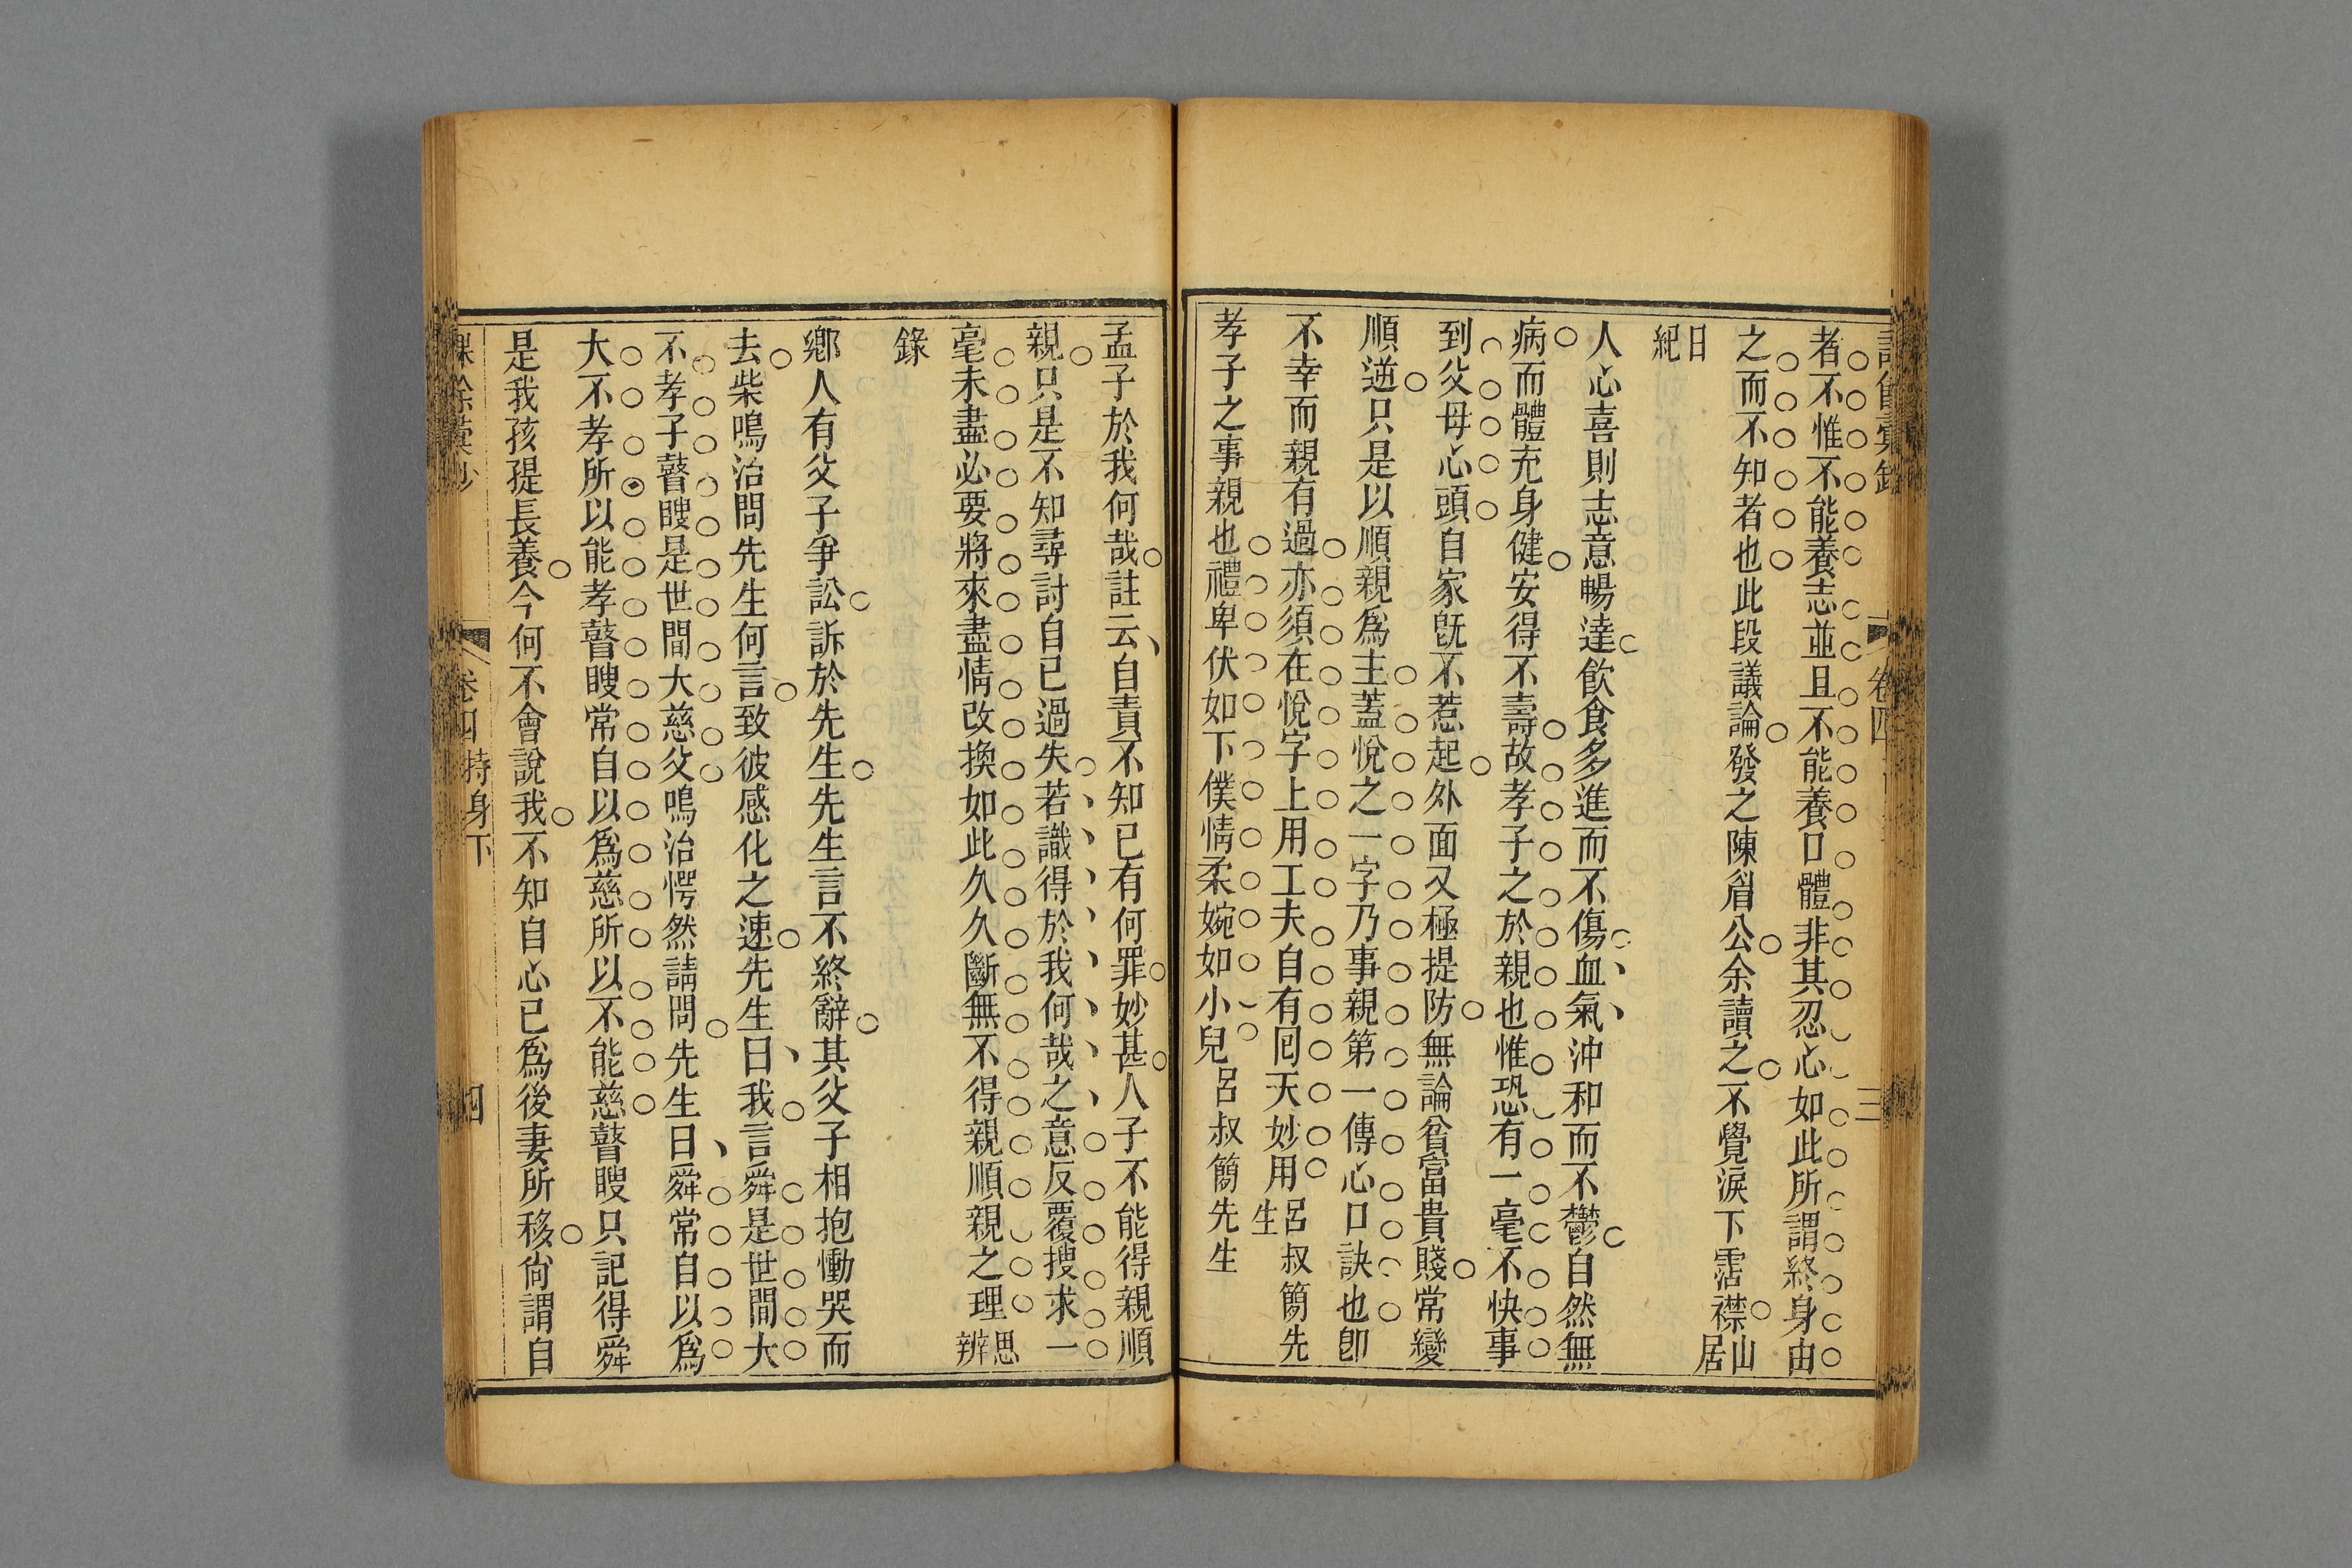 卷四
三
者不惟不能養志並且不能養口體非其忍心如此所謂終身由
之而不知者也此段議論發之陳眉公余讀之不覺淚下霑襟山居
日紀
人心喜則志意暢達飲食多進而不傷血氣沖和而不鬱自然無
病而體充身健安得不壽故孝子之於親也惟恐有一毫不快事
到父母心頭自家旣不惹起外面又極提防無論貧富貴賤常變
順逆只是以順親爲主蓋悅之一字乃事親第一傳心口訣也卽
不幸而親有過亦須在悅字上用工夫自有囘天妙用呂叔簡先生
孝子之事親也禮卑伏如下僕情柔婉如小兒呂叔簡先生
孟子於我何哉註云自責不知已有何罪妙甚人子不能得親順
親只是不知尋討自已過失若識得於我何哉之意反覆搜求一
毫未盡必要將來盡情改換如此久久斷無不得親順親之理思辨
錄
鄉人有父子爭訟訴於先生先生言不終辭其父子相抱慟哭而
去柴鳴治問先生何言致彼感化之速先生曰我言舜是世間大
不孝子瞽瞍是世間大慈父鳴治愕然請問先生曰舜常自以爲
大不孝所以能孝瞽瞍常自以爲慈所以不能慈瞽瞍只記得舜
是我孩提長養今何不會說我不知自心已爲後妻所移尙謂自
課餘彙鈔
卷四 持身下
四